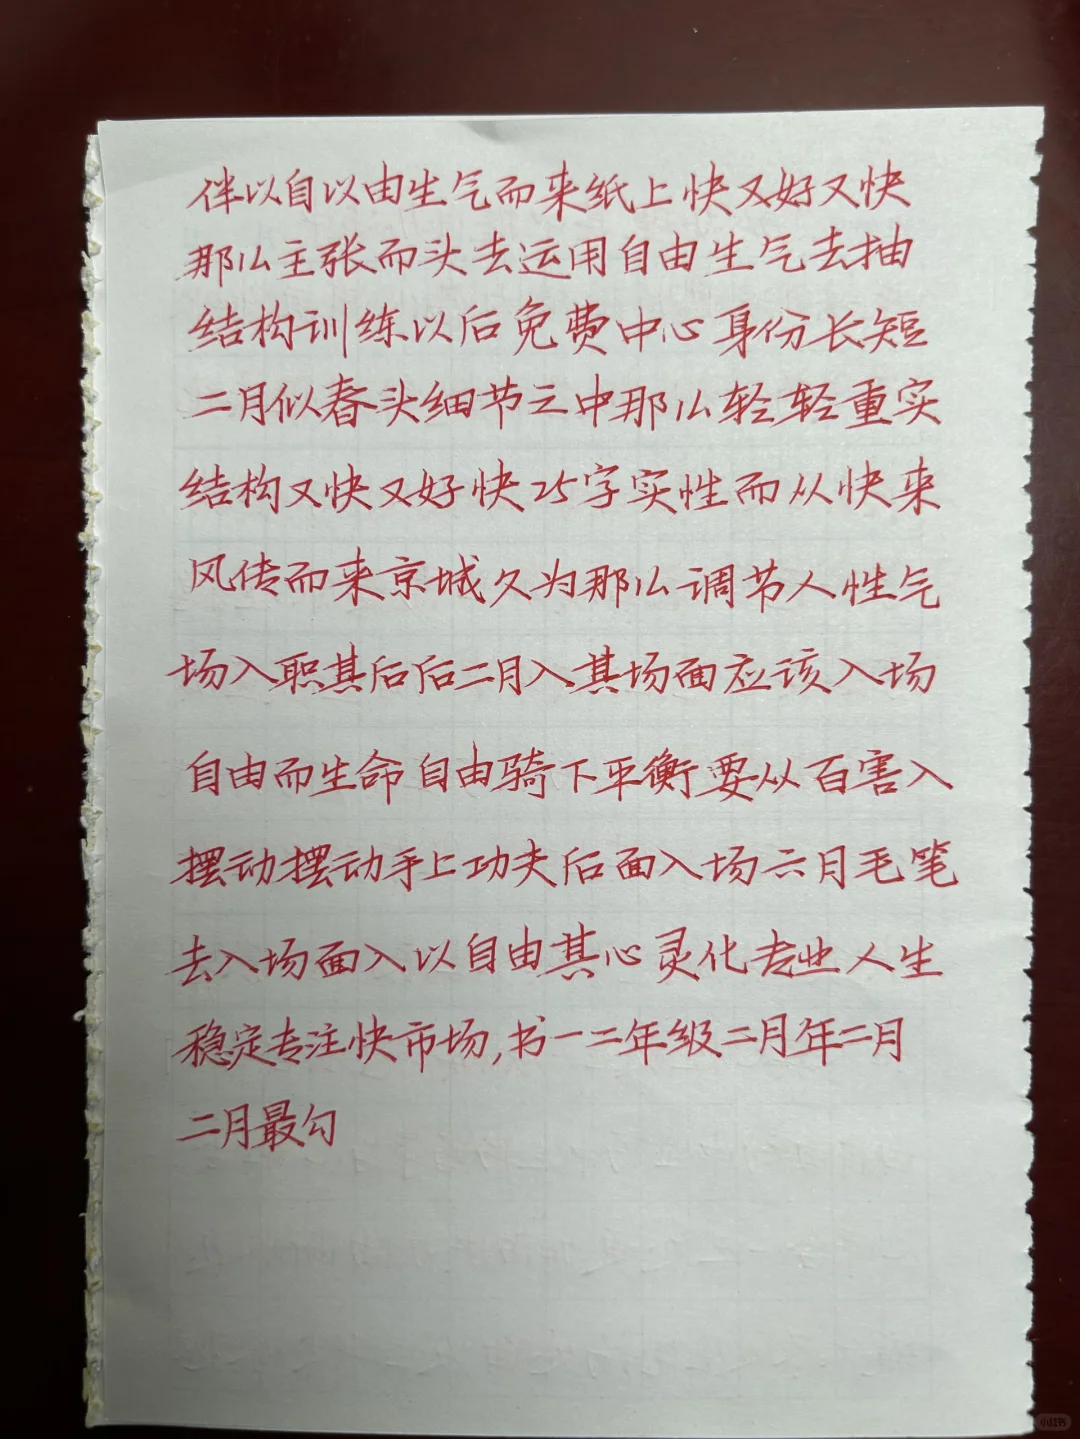 伴以自以由生气而来纸上快又好又快
那么主张而头去运用自由生气去抽
结构训练以后免费中心身份长短
二月似春头细节之中那么轻轻重实
结构又快又好快25字实性而从快来
风传而来京城久为那么调节人性气
场入职其后后二月入其场面应该入场
自由而生命自由骑下平衡要从百害入
摆动摆动手上功夫后面入场六月毛笔
去入场面入以自由其心灵化专业人生
稳定专注快市场,书一二年级二月年二月
二月最匀
小红书